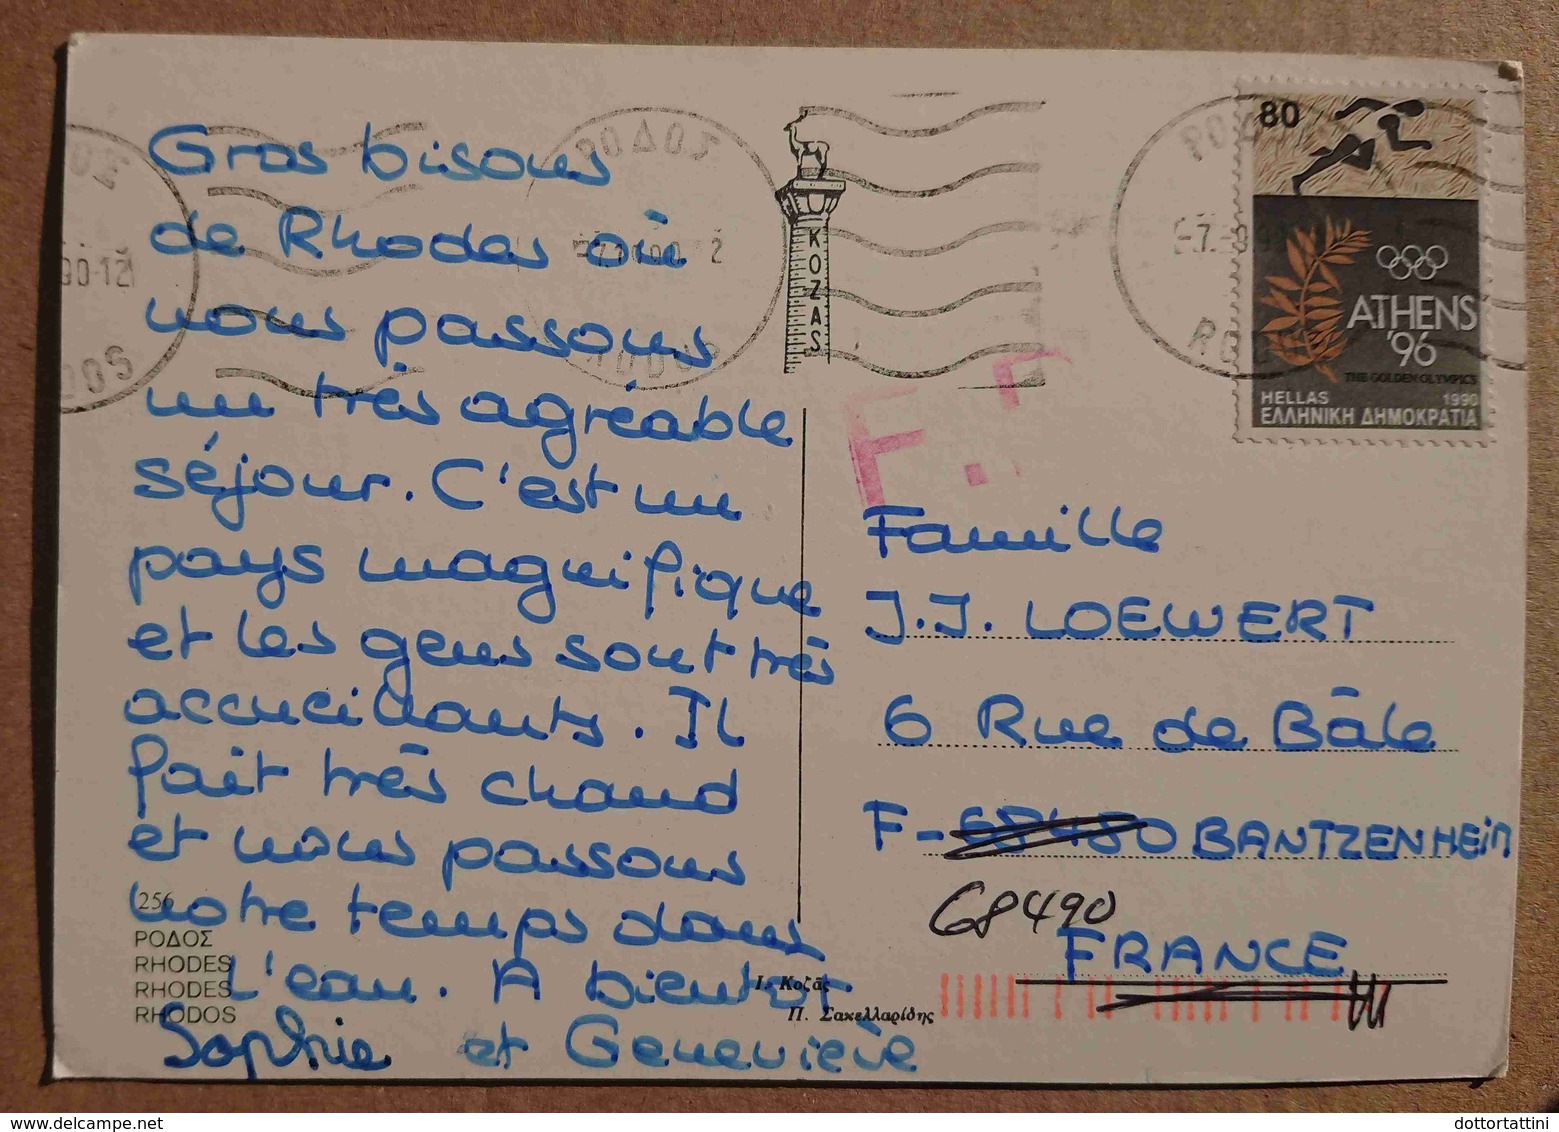 Gros bisous
de Rhodes où
nous passons
un très agréable
séjour. C'est un
pays magnifique
et les gens sont très
accueillants. Il
fait très chaud
et nous passons
notre temps dans
l'eau. A bientôt
Sophie et Geneviève
256
ΡΟΔΟΣ
RHODES
RHODES
RHODOS
ΡΟΔΟΣ
KOZAS
Ι. Κοζάς
Π. Σακελλαρίδης
80
ATHENS
'96
THE GOLDEN OLYMPICS
HELLAS 1990
ΕΛΛΗΝΙΚΗ ΔΗΜΟΚΡΑΤΙΑ
Famille
J.J. LOEWERT
6 Rue de Bâle
F-68480 BANTZENHEIM
68490
FRANCE
dottortattini